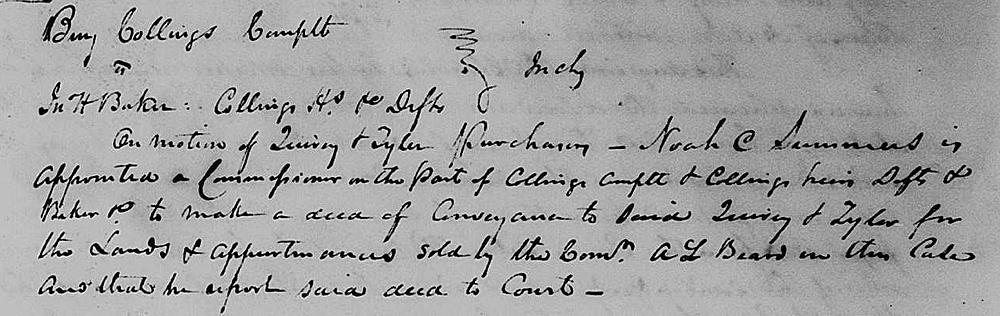 Benj Collings Complt
"      In chy
Jn H Baker : Collings Hs. &c Defts
On motion of Quirey & Tyler purchasers – Noah C Summers is
appointed a Commissioner on the Part of Collings Complt & Collings heirs Defts &
Baker to make a deed of Conveyance to said Quirey & Tyler for
the Lands & appurtenances sold by the Comr. A L Beard in this Case
and that he report said deed to Court –